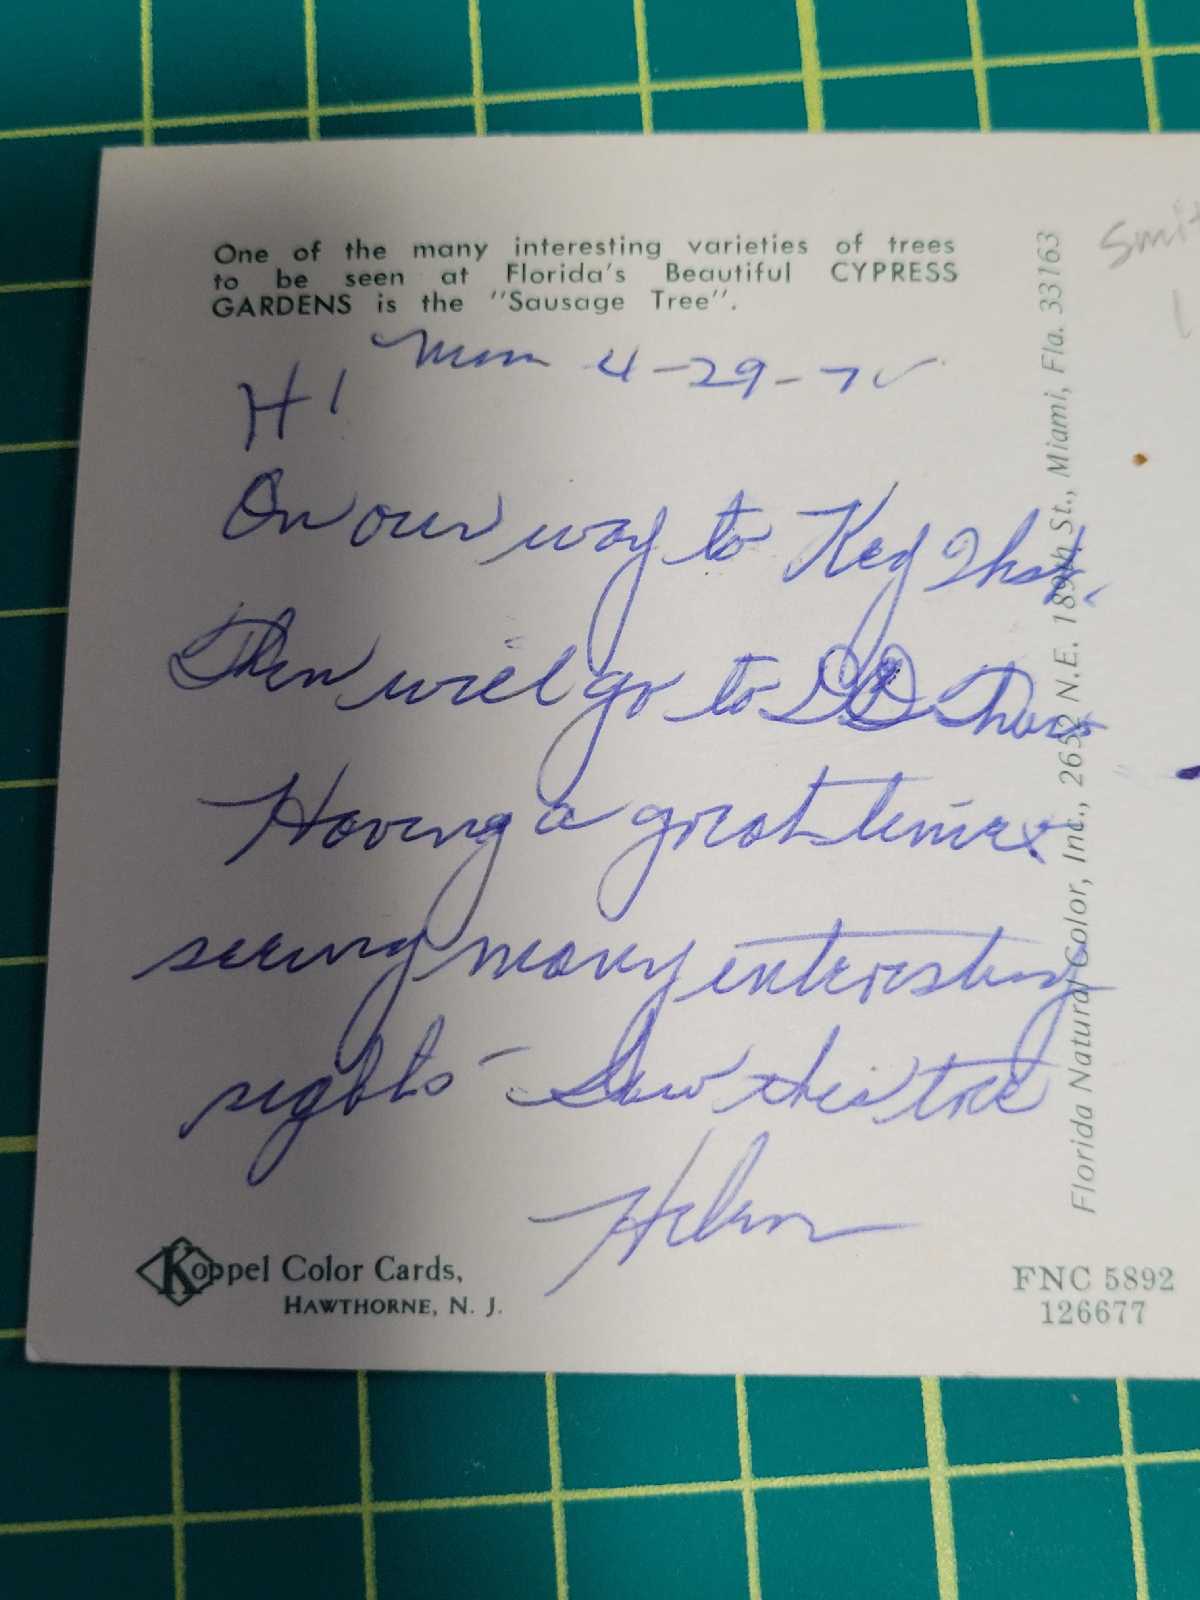 One of the many interesting varieties of trees
to be seen at Florida's Beautiful CYPRESS
GARDENS is the "Sausage Tree".
Mon 4-29-7
Hi
On our way to Key West,
Then will go to Thurs
Having a great time &
seeing many interesting
sights - Saw this tree
Helen
Koppel Color Cards,
HAWTHORNE, N. J.
Florida Natural Color, Inc., 2652 N.E. 189th St., Miami, Fla. 33163
FNC 5892
126677
Smit